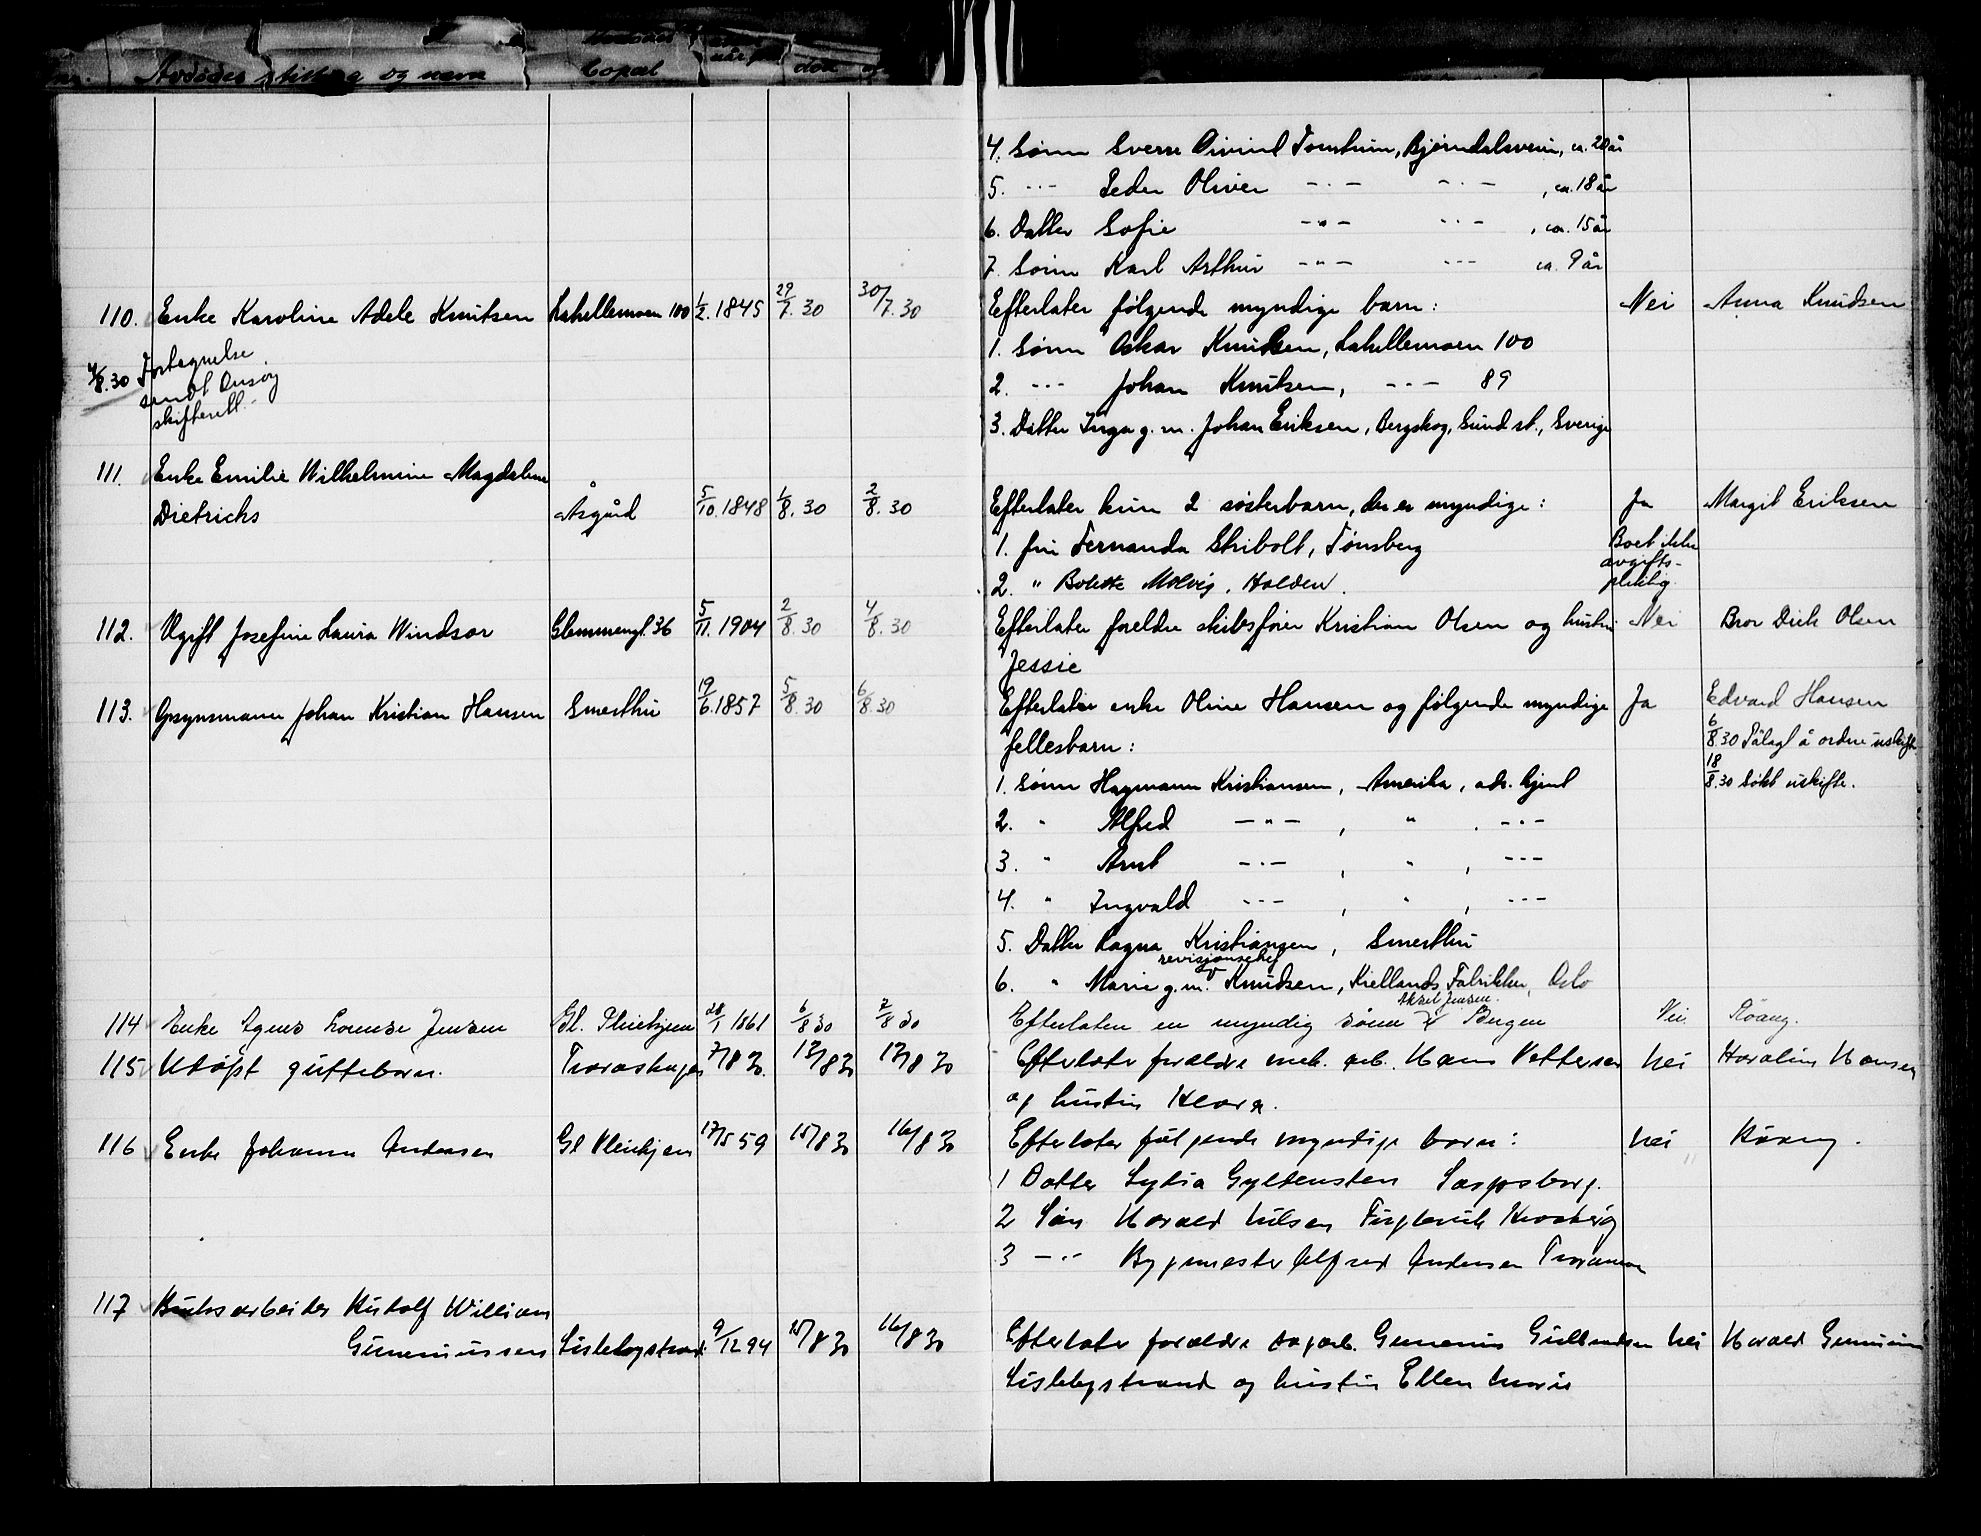 Avdødes stilling og navn Bopæl
4. Sønn Sverre Øivind Tomhum, Bjørndalsveien, ca. 20 år
5. -"- Peder Oliver -"- -"- , ca. 18 år
6. Datter Sofie -"- -"- , ca. 15 år
7. Sønn Karl Arthur -"- -"- ca. 9 år
110. Enke Karoline Adele Knutsen Lahellemoen 100 1/2. 1845 29/7. 30 30/7. 30 Efterlater følgende myndige barn: Nei Anna Knudsen
1. Sønn Oskar Knudsen, Lahellemoen 100
4/8.30 Fortegnelse
sendt Onsøy
skifterett.
2. -"- Johan Knutsen, -"- 89
3. Datter Inga g. m. Johan Eriksen, Bergskog, Sund st., Sverige
111. Enke Emilie Wilhelmine Magdalene
Dietrichs Åsgård 5/10. 1848 1/8. 30 2/8. 30 Efterlater kun 2 søsterbarn, der er myndige: Ja Margit Eriksen
1. fru Fernanda Skibolt, Tønsberg Boet ikke
avgifts-
pliktig.
2. " Bolette Molvig, Halden.
112. Ugift Josefine Laura Windsor Glemmengt. 36 5/11. 1904 2/8. 30 4/8. 30 Efterlater foreldre skibsfører Kristian Olsen og hustru Nei Bror Dick Olsen
Jessie
113. Opsynsmann Johan Kristian Hansen Smerthu 19/6. 1857 5/8. 30 6/8. 30 Efterlater enke Oline Hansen og følgende myndige Ja Edvard Hansen
fellesbarn: 6/8.30 Pålagt å ordne uskifte
1. Sønn Hagmann Kristiansen, Amerika, adr. kjent 18/8.30 Søkt uskifte.
2. " Alfred -"- , " , -"-
3. " Arnt -"- , " , -"-
4. " Ingvald -"- , " , -"-
5. Datter Ragna Kristiansen, Smerthu
6. " Marie g. m. revisjonschef Knudsen, Kiellands Fabrikker, Oslo
114 Enke Agnes Lovise Jensen Gl. Pleiehjem 28/1 1861 6/8 30 7/8 30 Efterlater en myndig sønn Aksel Jensen. Bergen Nei Røang.
115 Udøpt guttebarn. Traraskogen 7/8 30. 12/8 30 12/8 30 Efterlater forældre mek. arb. Hans Pettersen Nei Haralin Hansen
og hustru Klara.
116 Enke Johanne Andersen Gl Pleiehjem 17/5 59 15/8 30 16/8 30 Efterlater følgende myndige barn: Nei Røang.
1 Datter Lydia Gyldensten Sarpsborg.
2 Søn Harald Nilsen Kroberg
3 -"- Bygmester Alfred Andersen Traramoen
117 Bruksarbeider Rudolf William
Guneriussen Lislebystrand. 9/12 94 15/8 30 16/8 30 Efterlater forældre dagarb. Gunerius Gulbrandsen Nei Harald Gunerius
Lislebystrand og hustru Ellen Marie